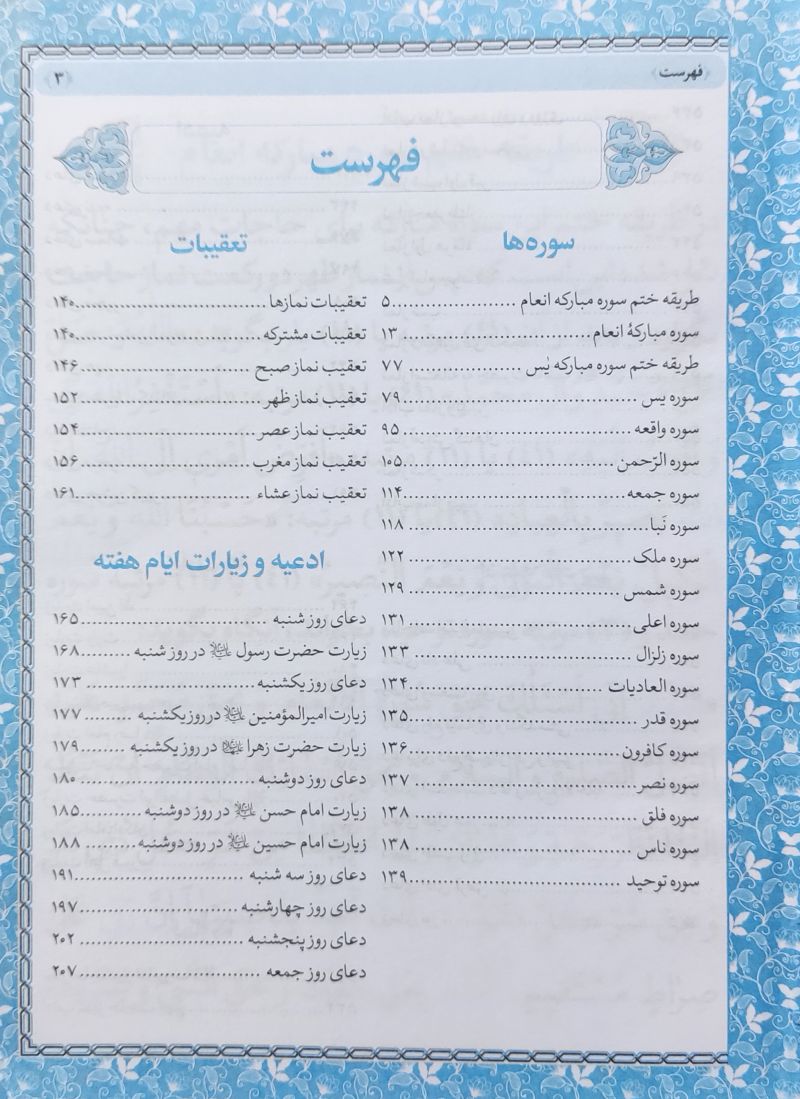 ﴿فهرست﴾
﴿۳﴾
فهرست
سوره‌ها
طریقه ختم سوره مبارکه انعام ..................... ۵
سوره مبارکهٔ انعام ..................... ۱۳
طریقه ختم سوره مبارکه یٰس ..................... ۷۷
سوره یس ..................... ۷۹
سوره واقعه ..................... ۹۵
سوره الرّحمن ..................... ۱۰۵
سوره جمعه ..................... ۱۱۴
سوره نَبا ..................... ۱۱۸
سوره ملک ..................... ۱۲۲
سوره شمس ..................... ۱۲۹
سوره اعلی ..................... ۱۳۱
سوره زلزال ..................... ۱۳۳
سوره العادیات ..................... ۱۳۴
سوره قدر ..................... ۱۳۵
سوره کافرون ..................... ۱۳۶
سوره نصر ..................... ۱۳۷
سوره فلق ..................... ۱۳۸
سوره ناس ..................... ۱۳۸
سوره توحید ..................... ۱۳۹
تعقیبات
تعقیبات نمازها ..................... ۱۴۰
تعقیبات مشترکه ..................... ۱۴۰
تعقیب نماز صبح ..................... ۱۴۶
تعقیب نماز ظهر ..................... ۱۵۲
تعقیب نماز عصر ..................... ۱۵۴
تعقیب نماز مغرب ..................... ۱۵۶
تعقیب نماز عشاء ..................... ۱۶۱
ادعیه و زیارات ایام هفته
دعای روز شنبه ..................... ۱۶۵
زیارت حضرت رسول ﷺ در روز شنبه ......... ۱۶۸
دعای روز یکشنبه ..................... ۱۷۳
زیارت امیرالمؤمنین در روز یکشنبه ......... ۱۷۷
زیارت حضرت زهرا در روز یکشنبه ........ ۱۷۹
دعای روز دوشنبه ..................... ۱۸۰
زیارت امام حسن در روز دوشنبه .......... ۱۸۵
زیارت امام حسین در روز دوشنبه ......... ۱۸۸
دعای روز سه شنبه ..................... ۱۹۱
دعای روز چهارشنبه ..................... ۱۹۷
دعای روز پنجشنبه ..................... ۲۰۲
دعای روز جمعه ..................... ۲۰۷